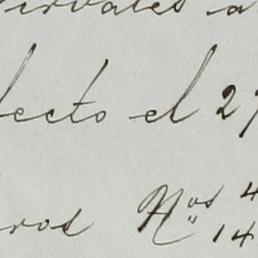 ervales a
fecto el 29
ros Nos 4
14